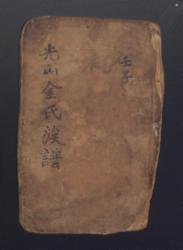 壬子
光山金氏族譜